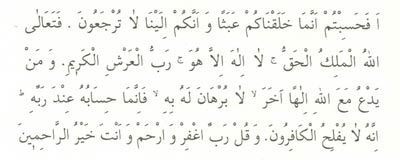 اَ فَحَسِبْتُمْ اَنَّمَا خَلَقْنَاكُمْ عَبَثًا وَ اَنَّكُمْ اِلَيْنَا لَا تُرْجَعُونَ . فَتَعَالَى
اللهُ الْمَلِكُ الْحَقُّ ۚ لَا اِلٰهَ اِلَّا هُوَ ۚ رَبُّ الْعَرْشِ الْكَرِيمِ. وَ مَنْ
يَدْعُ مَعَ اللهِ اِلٰهًا اٰخَرَ ۙ لَا بُرْهَانَ لَهُ بِهِ ۙ فَاِنَّمَا حِسَابُهُ عِنْدَ رَبِّهِ ؕ
اِنَّهُ لَا يُفْلِحُ الْكَافِرُونَ. وَ قُلْ رَبِّ اغْفِرْ وَ ارْحَمْ وَ اَنْتَ خَيْرُ الرَّاحِمِينَ